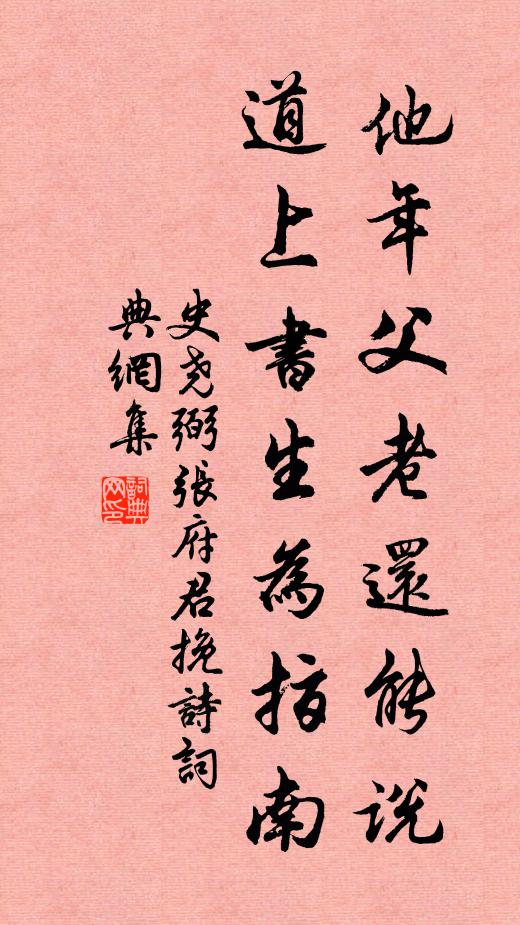 他年父老還能说
道上書生為指南
史尧弼張府君挽詩詞
典網集
詞典網印